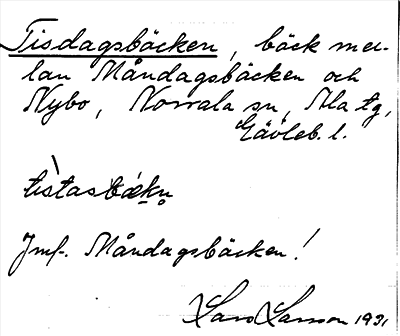 Tisdagsbäcken, bäck mel-
lan Måndagsbäcken och
Nybo, Norrala sn, Ala tg,
Gävleb. l.
Jmf. Måndagsbäcken!
Lars Larsson 1931